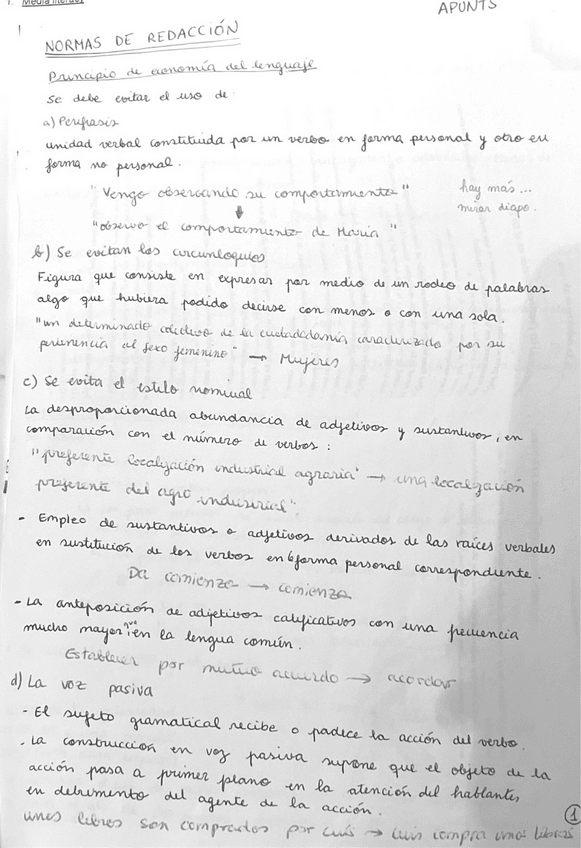 1. Media literacy
APUNTS
NORMAS DE REDACCIÓN
Principio de economía del lenguaje
Se debe evitar el uso de:
a) Perífrasis
unidad verbal constituida por un verbo en forma personal y otro en
forma no personal.
"Vengo observando su comportamiento"
hay más...
mirar diapo.
"observo el comportamiento de María"
b) Se evitan los circunloquios
Figura que consiste en expresar por medio de un rodeo de palabras
algo que hubiera podido decirse con menos o con una sola.
"un determinado colectivo de la ciudadanía caracterizado por su
pertenencia al sexo femenino" → Mujeres
c) Se evita el estilo nominal
La desproporcionada abundancia de adjetivos y sustantivos, en
comparación con el número de verbos:
"preferente localización industrial agraria" → una localización
preferente del agro-industrial".
- Empleo de sustantivos o adjetivos derivados de las raíces verbales
en sustitución de los verbos en forma personal correspondiente.
Da comienzo → comienza
- La anteposición de adjetivos calificativos con una frecuencia
mucho mayor que en la lengua común.
Establecer por mutuo acuerdo → acordar
d) La voz pasiva
- El sujeto gramatical recibe o padece la acción del verbo.
- La construcción en voz pasiva supone que el objeto de la
acción pasa a primer plano en la atención del hablante,
en detrimento del agente de la acción.
unos libros son comprados por Luis → Luis compra unos libros
1